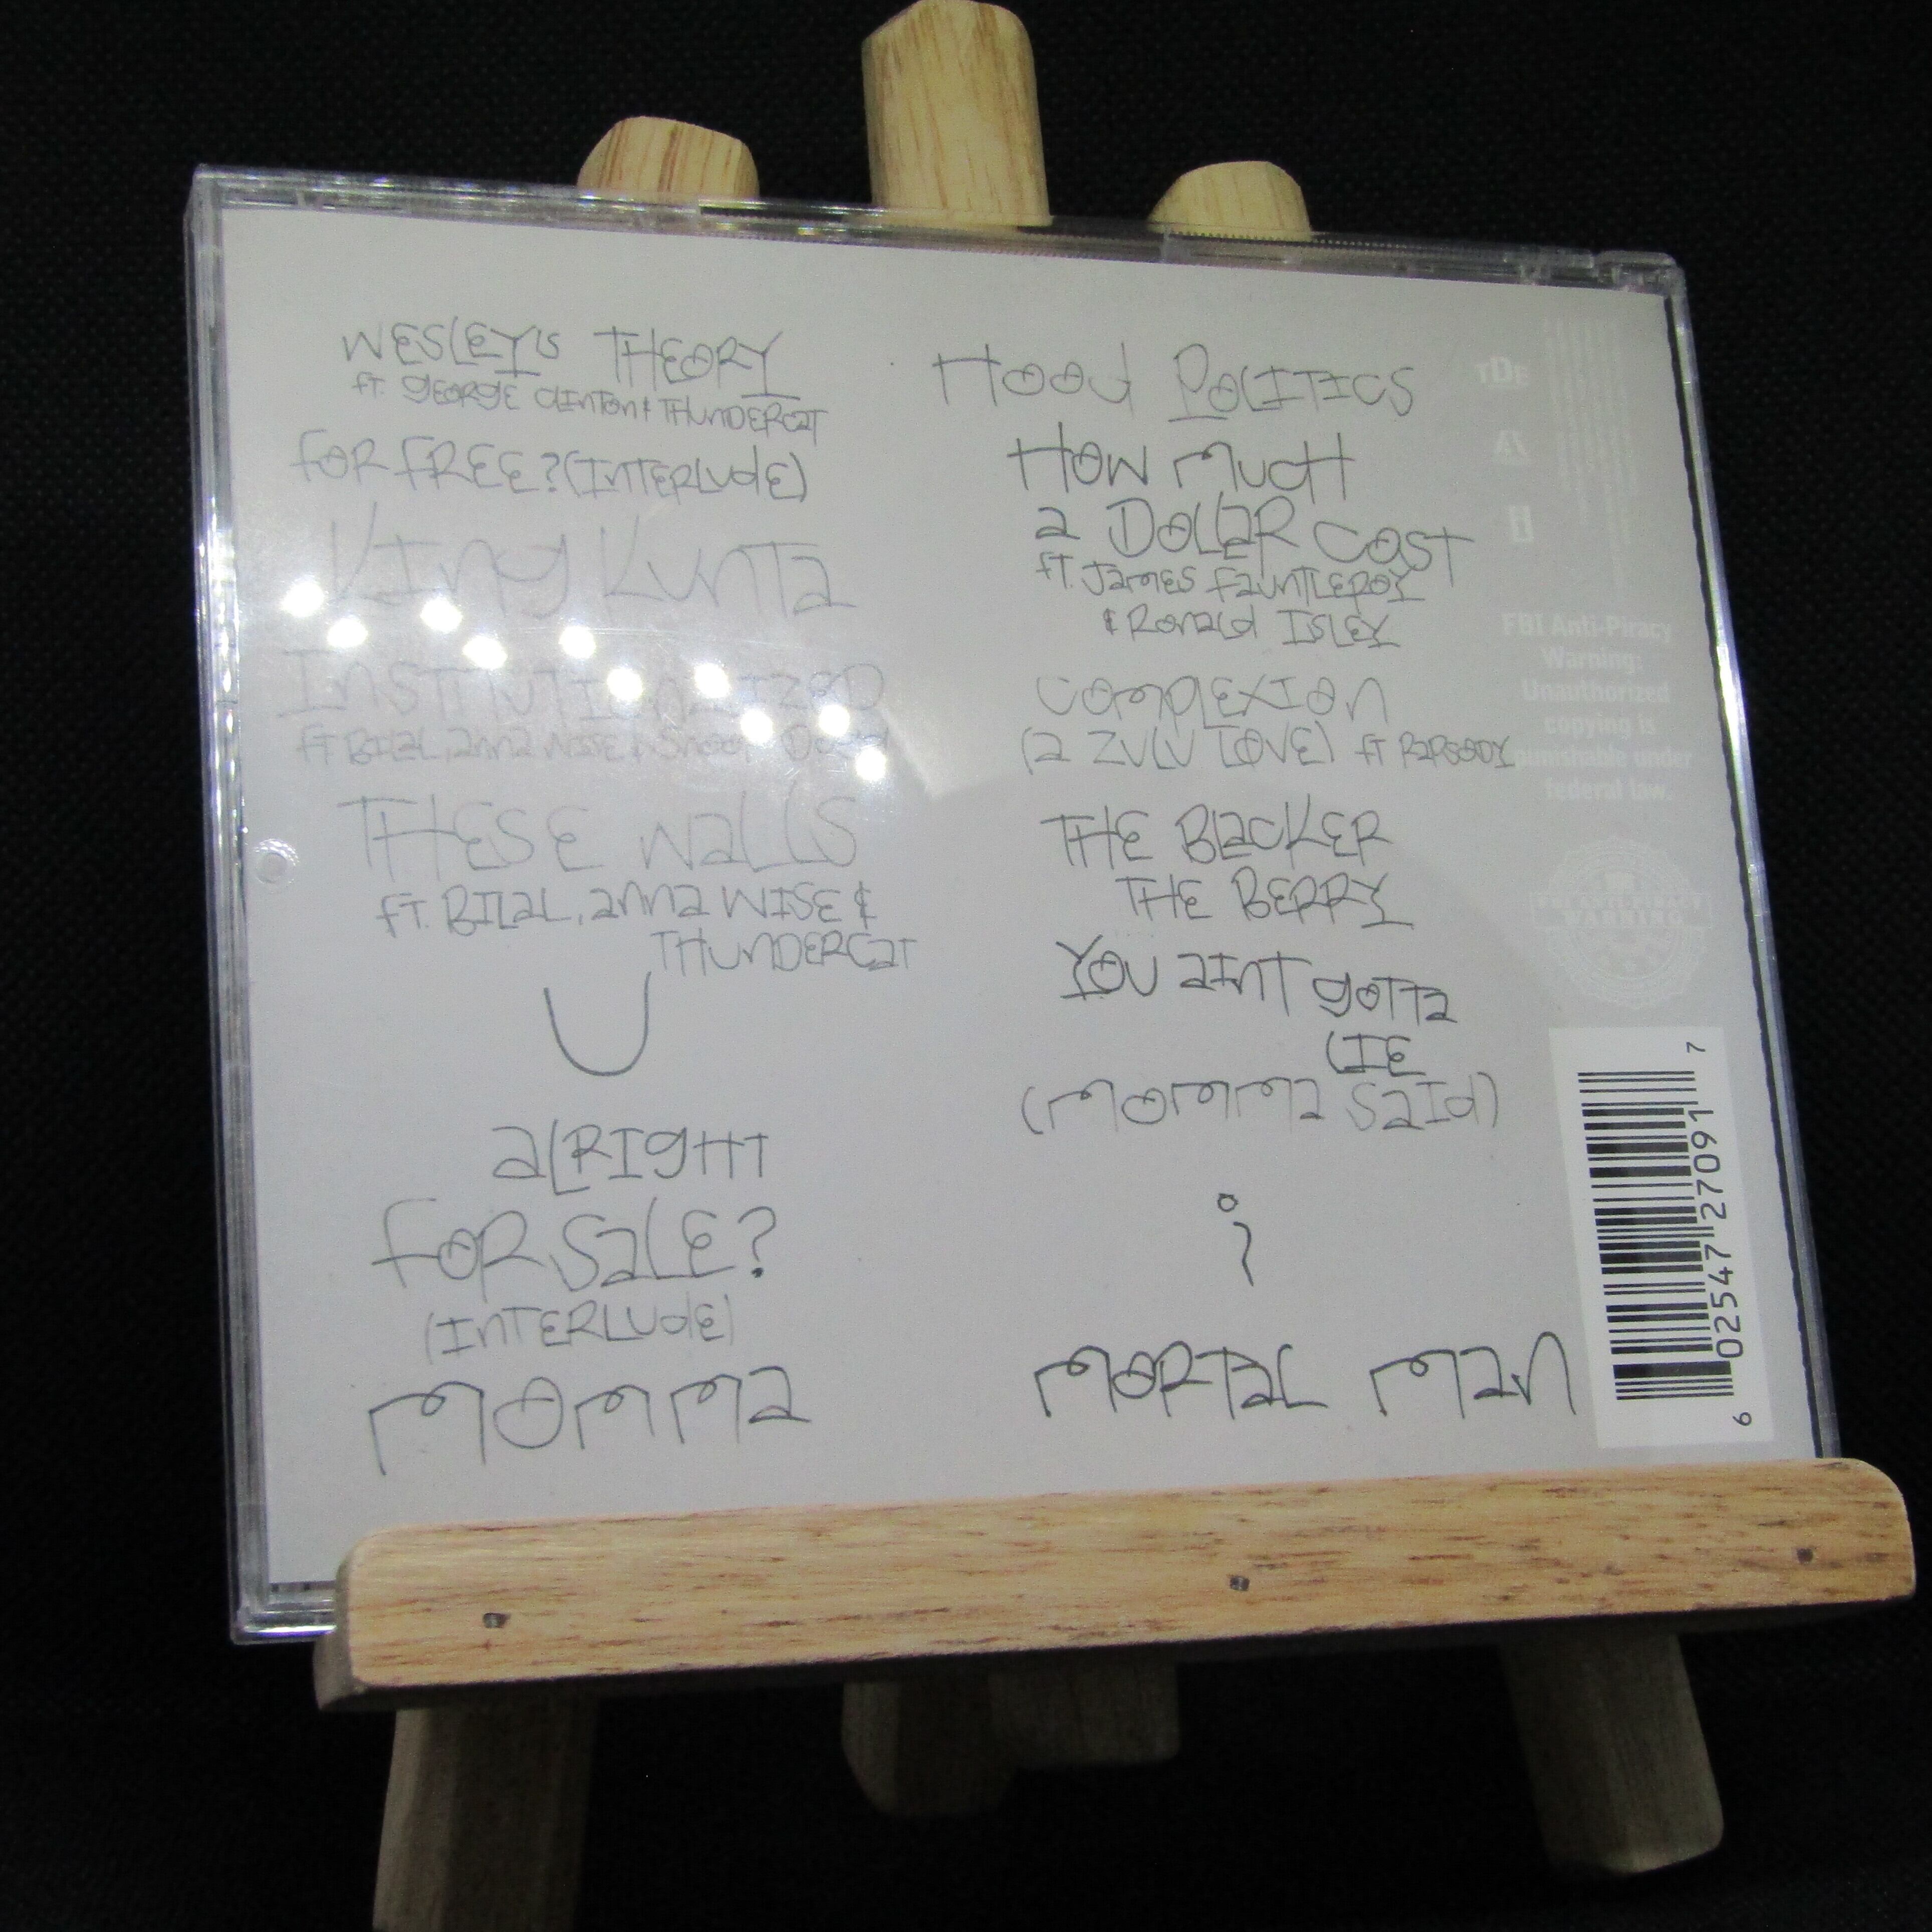 WESLEY'S THEORY
ft. GEORGE CLINTON & THUNDERCAT
FOR FREE? (INTERLUDE)
King Kunta
INSTITUTIONALIZED
ft BILAL, anna WISE & SNOOP DOGG
THESE WALLS
ft. BILAL, anna WISE &
THUNDERCAT
U
ALRIGHT
FOR SALE?
(INTERLUDE)
MOMMA
HOOD POLITICS
HOW MUCH
a DOLLAR COST
ft. JAMES FAUNTLEROY
& RONALD ISLEY
COMPLEXION
(a ZULU LOVE) ft RAPSODY
THE BLACKER
THE BERRY
YOU AINT GOTTA
LIE
(MOMMA SAID)
i
MORTAL MAN
TDE
FBI Anti-Piracy
Warning:
Unauthorized
copying is
punishable under
federal law.
6 02547 27091 7